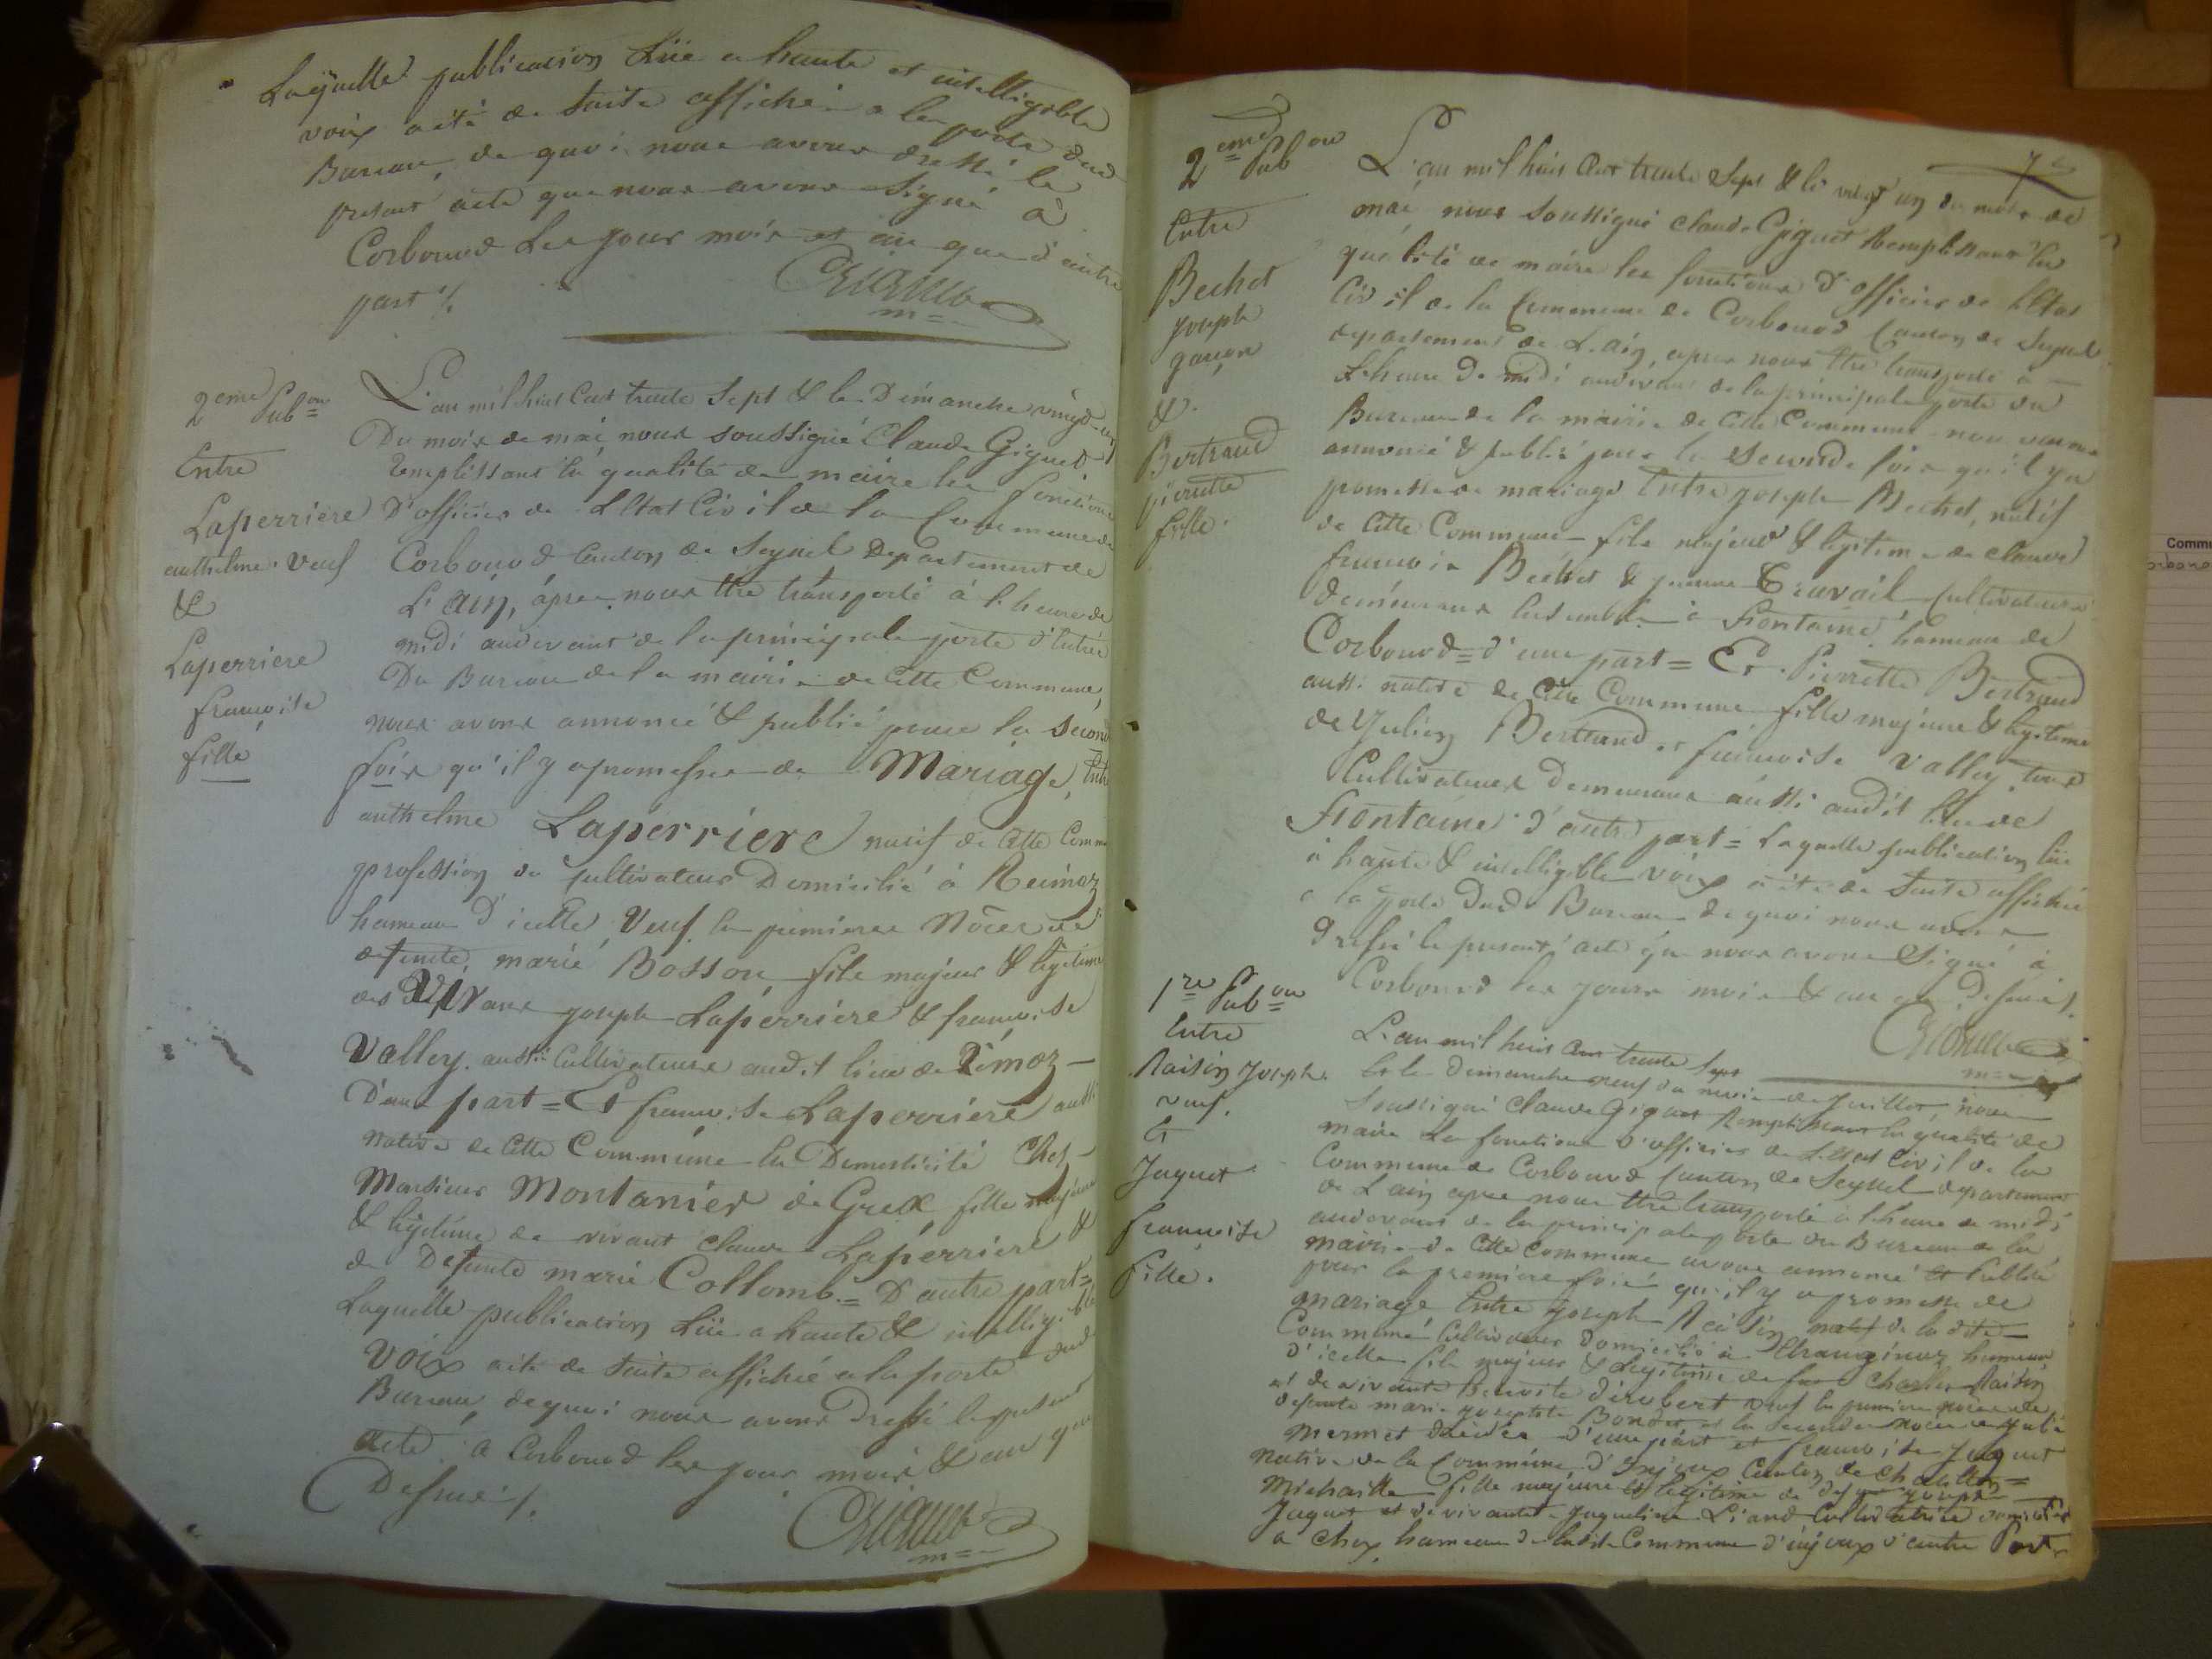 Laquelle publication Lüe a haute et intelligible
voix a été de suite affichée a la porte dud
Bureau, de quoi nous avons dressé le
présent acte que nous avons signé à
Corbonod Les jour mois et an que d'autre
part ./.
Giguet
m=
2eme Pubon
Entre
Laperriere
anthelme. Veuf
&
Laperriere
françoise
fille
L'an mil huit Cent trente Sept & le Dimanche vingt-un
Du mois de mai, nous soussigné Claude Giguet
remplissant la qualité de maire les fonctions
D'officier de L'Etat Civil de la Commune de
Corbonod Canton de Seyssel Département de
L'ain, après nous être transporté à l'heure de
midi audevant de la principale porte d'entrée
Du Bureau de la mairie de Cette Commune,
nous avons annoncé & publié pour la second
fois qu'il y a promesse de Mariage, Entre
anthelme Laperriere natif de Cette Comm
profession de Cultivateur Domicilié à Reimoz
hameau D'icelle, Veuf en premieres Nôces de
defunte marie Bosson, fils majeur & légitime
des Vivans joseph Laperriere & françoise
Valley. aussi Cultivateurs audit lieu de Rémoz-
D'une part = Et françoise Laperriere aussi
native de Cette Commune en Domesticité Chez
Monsieur Montanier de Grex fille majeure
& légitime de vivant claude Laperriere &
de Defunte marie Collomb = D'autre part=
Laquelle publication Lüe a haute & intelligible
Voix a été de suite affichée a la porte dud
Bureau, de quoi nous avons Dressé le présent
acte à Corbonod les jour mois & an que
Dessus ./.
Giguet
m=
7
2eme Pubon
Entre
Bechet
joseph
garçon
&
Bertrand
pierrette
fille.
L'an mil huit Cent trente Sept & le vingt un du mois de
mai, nous soussigné Claude Giguet Remplissant la
qualité de maire les fonctions D'officier de L'Etat
Civil de la Commune de Corbonod Canton de Seyssel
département de L'ain, après nous être transporté à
L'heure de midi audevant de la principale porte du
Bureau de la mairie de Cette Commune nous avons
annoncé & publié pour la seconde fois qu'il y a
promesse de mariage Entre joseph Bechet, natif
de Cette Commune fils majeur & légitime de claude
françois Bechet & jeanne Cravail Cultivateurs
demeurans Ensemble à fiontaine hameau de
Corbonod = d'une part = Et. Pierrette Bertrand
aussi native de Cette Commune fille majeure & légitime
de Julien Bertrand et françoise Valley tous
Cultivateurs Demeurans aussi audit lieu de
fiontaine D'autre part = Laquelle publication lüe
à haute & intelligible voix a été de suite affichée
a la porte Dud Bureau de quoi nous avons
Dressé le présent acte que nous avons Signé à
Corbonod les jours mois & an que Dessus ./.
Giguet
m=
1re Pubon
Entre
Raisin Joseph.
veuf.
&
Juquet
françoise
fille.
L'an mil huit Cent trente Sept
Et le Dimanche neuf du mois de juillet, nous
soussigné Claude Giguet Remplissant la qualité de
maire Les fonctions D'officier de L'Etat Civil de la
Commune de Corbonod Canton de Seyssel département
de L'ain après nous être transporté à l'heure de midi
audevant de la principale porte du Bureau de la
mairie de Cette Commune avons annoncé Et Publié
pour la premiere fois qu'il y a promesse de
mariage Entre Joseph Raisin natif de ladite
Commune Cultivateur Domicilié à hameau
D'icelle fils majeur & Légitime de feu Charles Raisin
et de vivante Benoite Dérobert veuf en premiere nôces de
defunte marie josephte Bondet et en secondes nôces de julie
mermet d'une part et françoise Juquet
native de la Commune D'injoux Canton de Chatillon=
Michaille fille majeure & légitime de defunt joseph
Juquet et de vivante Jaqueline Liand Cultivatrice domiciliée
a Chez, hameau de ladite Commune D'injoux D'autre Part